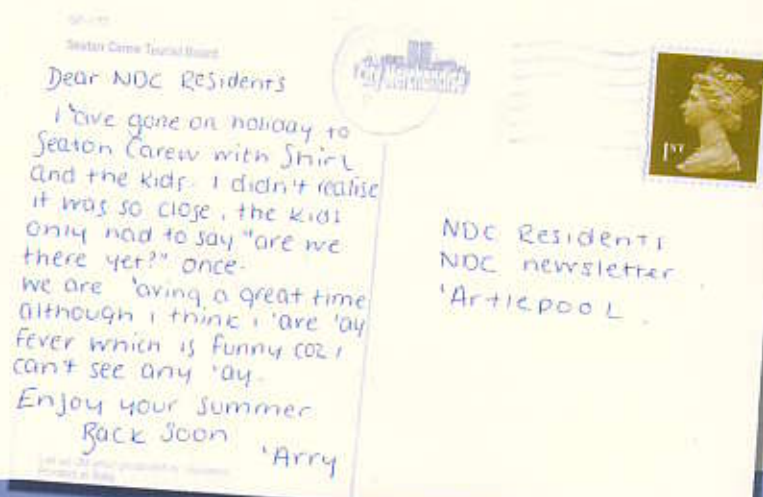 Seaton Carew Tourist Board
Dear NDC Residents
I 'ave gone on holiday to
Seaton Carew with Shirl
and the kids. I didn't realise
it was so close, the kids
only had to say "are we
there yet?" once.
we are 'aving a great time
although i think i 'ave 'ay
fever which is funny coz i
can't see any 'ay.
Enjoy your summer
Back Soon
'Arry
1ST
NDC Residents
NDC newsletter
'Artlepool.